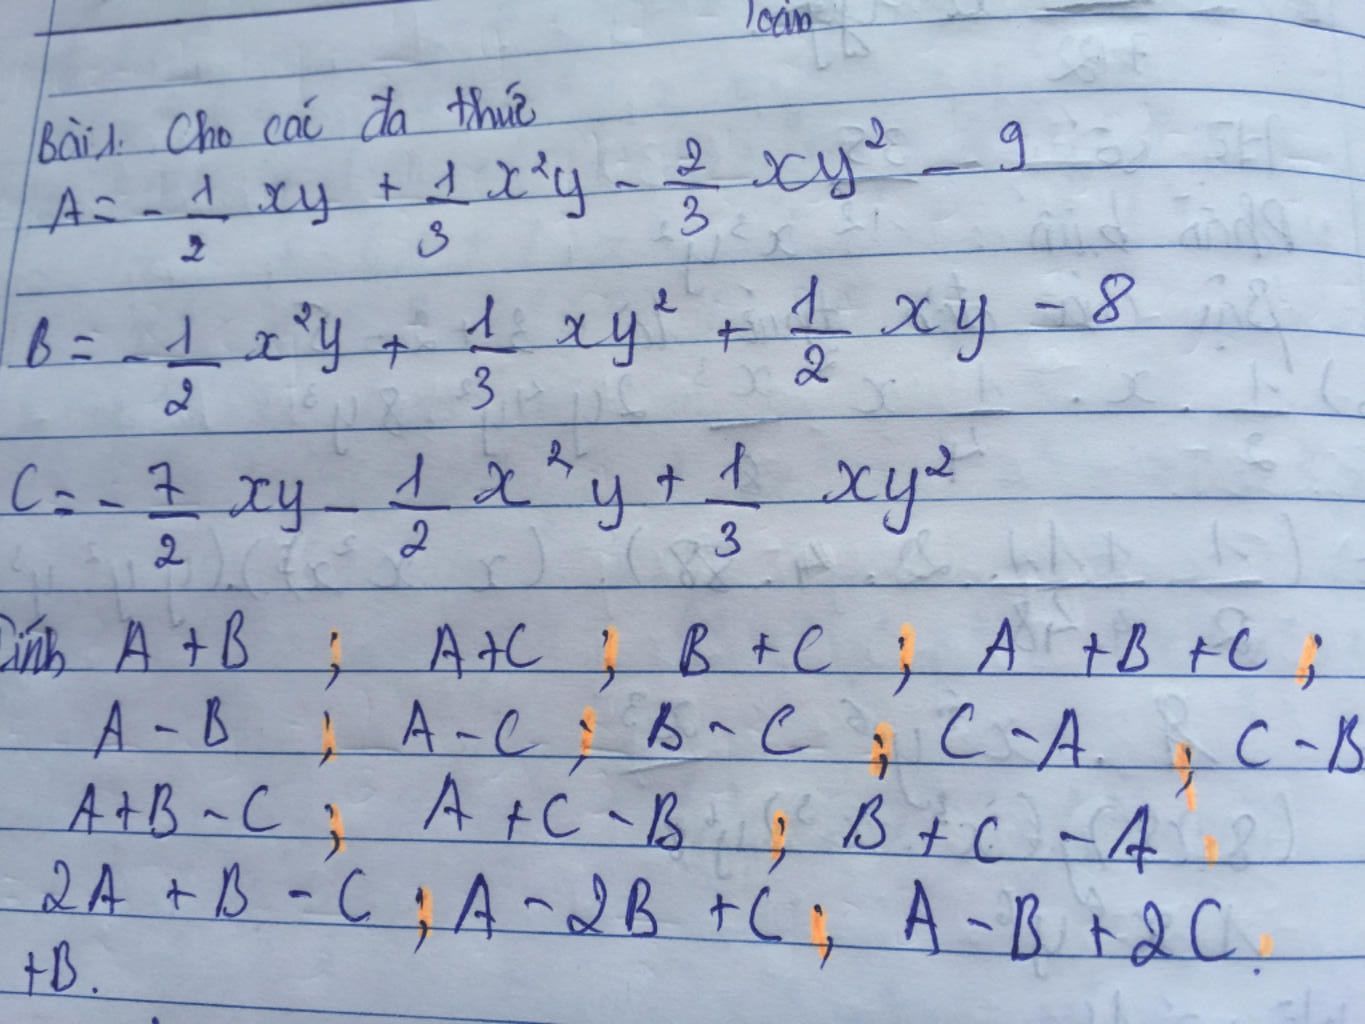 Toán
Bài 1. Cho các đa thức
A = - 1/2 xy + 1/3 x²y - 2/3 xy² - 9
B = - 1/2 x²y + 1/3 xy² + 1/2 xy - 8
C = - 7/2 xy - 1/2 x²y + 1/3 xy²
Tính A + B ; A + C ; B + C ; A + B + C ;
A - B ; A - C ; B - C ; C - A ; C - B
A + B - C ; A + C - B ; B + C - A ;
2A + B - C ; A - 2B + C ; A - B + 2C.
+B.